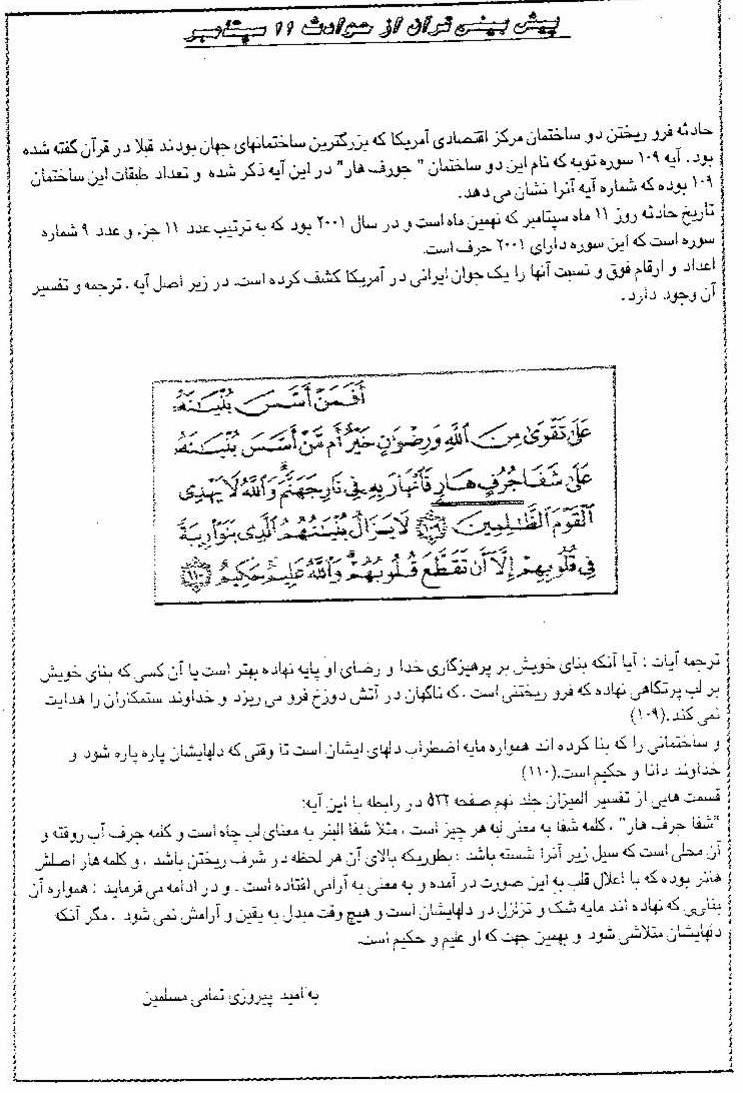 پیش بینی قرآن از حوادث ۱۱ سپتامبر
حادثه فرو ریختن دو ساختمان مرکز اقتصادی آمریکا که بزرگترین ساختمانهای جهان بودند قبلا در قرآن گفته شده
بود. آیه ۱۰۹ سوره توبه که نام این دو ساختمان " جورف هار" در این آیه ذکر شده و تعداد طبقات این ساختمان
۱۰۹ بوده که شماره آیه آنرا نشان می دهد.
تاریخ حادثه روز ۱۱ ماه سپتامبر که نهمین ماه است و در سال ۲۰۰۱ بود که به ترتیب عدد ۱۱ جزء و عدد ۹ شماره
سوره است که این سوره دارای ۲۰۰۱ حرف است.
اعداد و ارقام فوق و نسبت آنها را یک جوان ایرانی در آمریکا کشف کرده است. در زیر اصل آیه ، ترجمه و تفسیر
آن وجود دارد.
أَفَمَنْ أَسَّسَ بُنْيَـٰنَهُ
عَلَىٰ تَقْوَىٰ مِنَ اللَّهِ وَرِضْوَٰنٍ خَيْرٌ أَم مَّنْ أَسَّسَ بُنْيَـٰنَهُ
عَلَىٰ شَفَا جُرُفٍ هَارٍ فَانْهَارَ بِهِ فِي نَارِ جَهَنَّمَ وَاللَّهُ لَا يَهْدِي
الْقَوْمَ الظَّـٰلِمِينَ ۱۰۹ لَا يَزَالُ بُنْيَـٰنُهُمُ الَّذِي بَنَوْا رِيبَةً
فِي قُلُوبِهِمْ إِلَّا أَن تَقَطَّعَ قُلُوبُهُمْ وَاللَّهُ عَلِيمٌ حَكِيمٌ ۱۱۰
ترجمه آیات : آیا آنکه بنای خویش بر پرهیزگاری خدا و رضای او پایه نهاده بهتر است یا آن کسی که بنای خویش
بر لب پرتگاهی نهاده که فرو ریختنی است ، که ناگهان در آتش دوزخ فرو می ریزد و خداوند ستمکاران را هدایت
نمی کند.(۱۰۹)
و ساختمانی را که بنا کرده اند همواره مایه اضطراب دلهای ایشان است تا وقتی که دلهایشان پاره پاره شود و
خداوند دانا و حکیم است.(۱۱۰)
قسمت هایی از تفسیر المیزان جلد نهم صفحه ۵۳۲ در رابطه با این آیه:
"شفا جرف هار" ، کلمه شفا به معنی لبه هر چیز است ، مثلا شفا البئر به معنای لب چاه است و کلمه جرف آب روفته و
آن محلی است که سیل زیر آنرا شسته باشد ؛ بطوریکه بالای آن هر لحظه در شرف ریختن باشد ، و کلمه هار اصلش
هائر بوده که با اعلال قلب به این صورت در آمده و به معنی به آرامی افتاده است . و در ادامه می فرماید : همواره آن
بنایی که نهاده اند مایه شک و تزلزل در دلهایشان است و هیچ وقت مبدل به یقین و آرامش نمی شود ، مگر آنکه
دلهایشان متلاشی شود و بهمین جهت که او علیم و حکیم است.
به امید پیروزی تمامی مسلمین